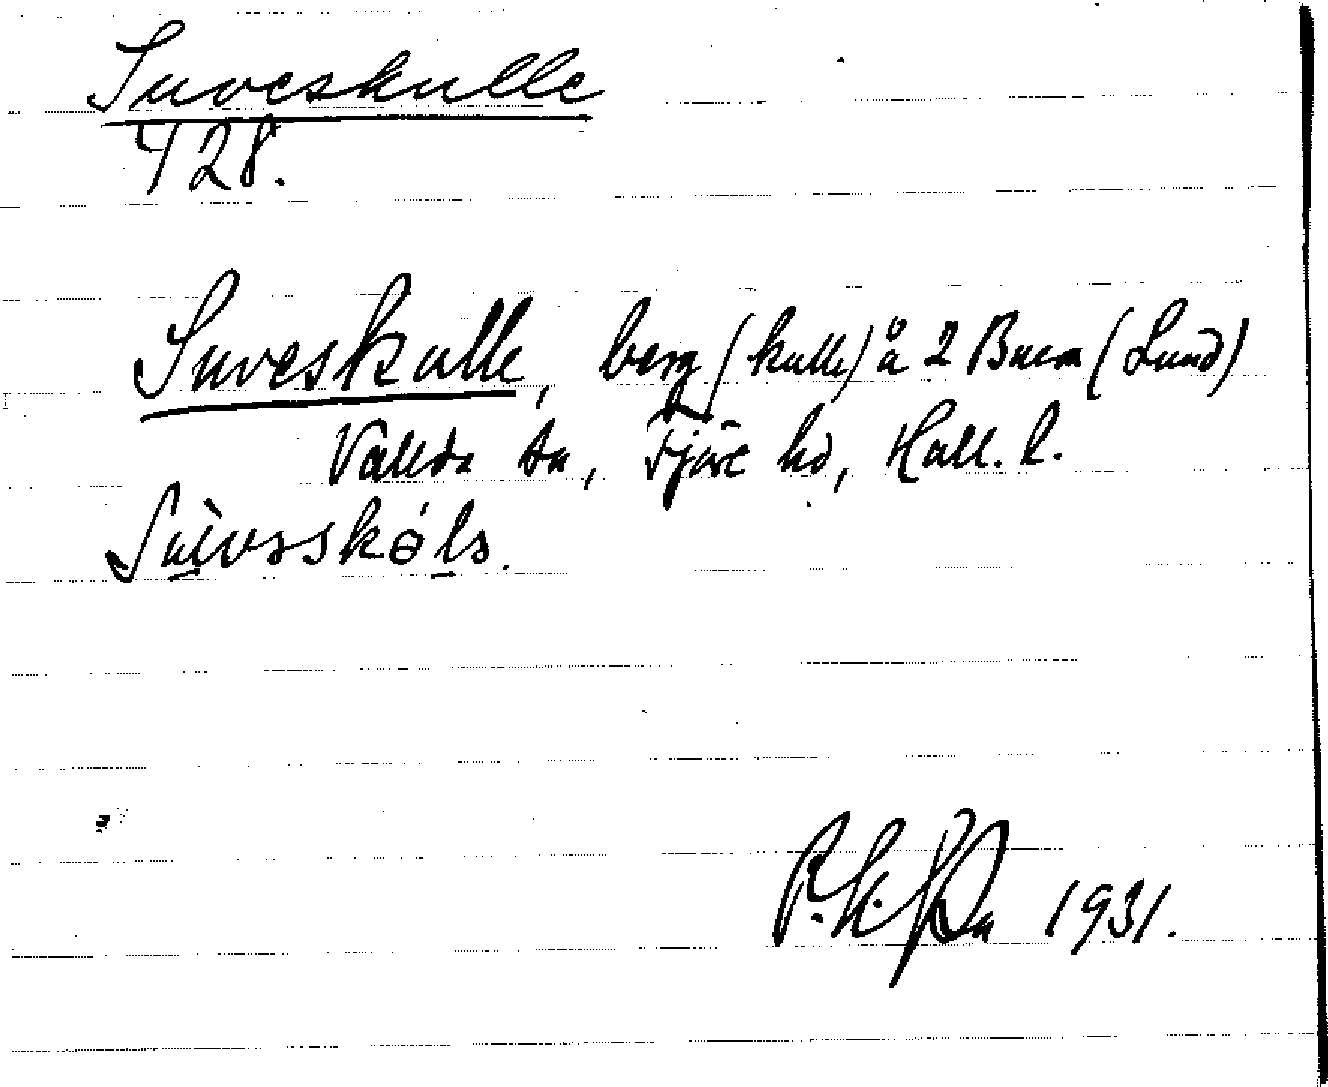 Suveskulle
428.
Suveskulle, berg (kulle) å 2 Buera (Lund)
Vallda sn, Fjäre hd, Hall. l.
1931.